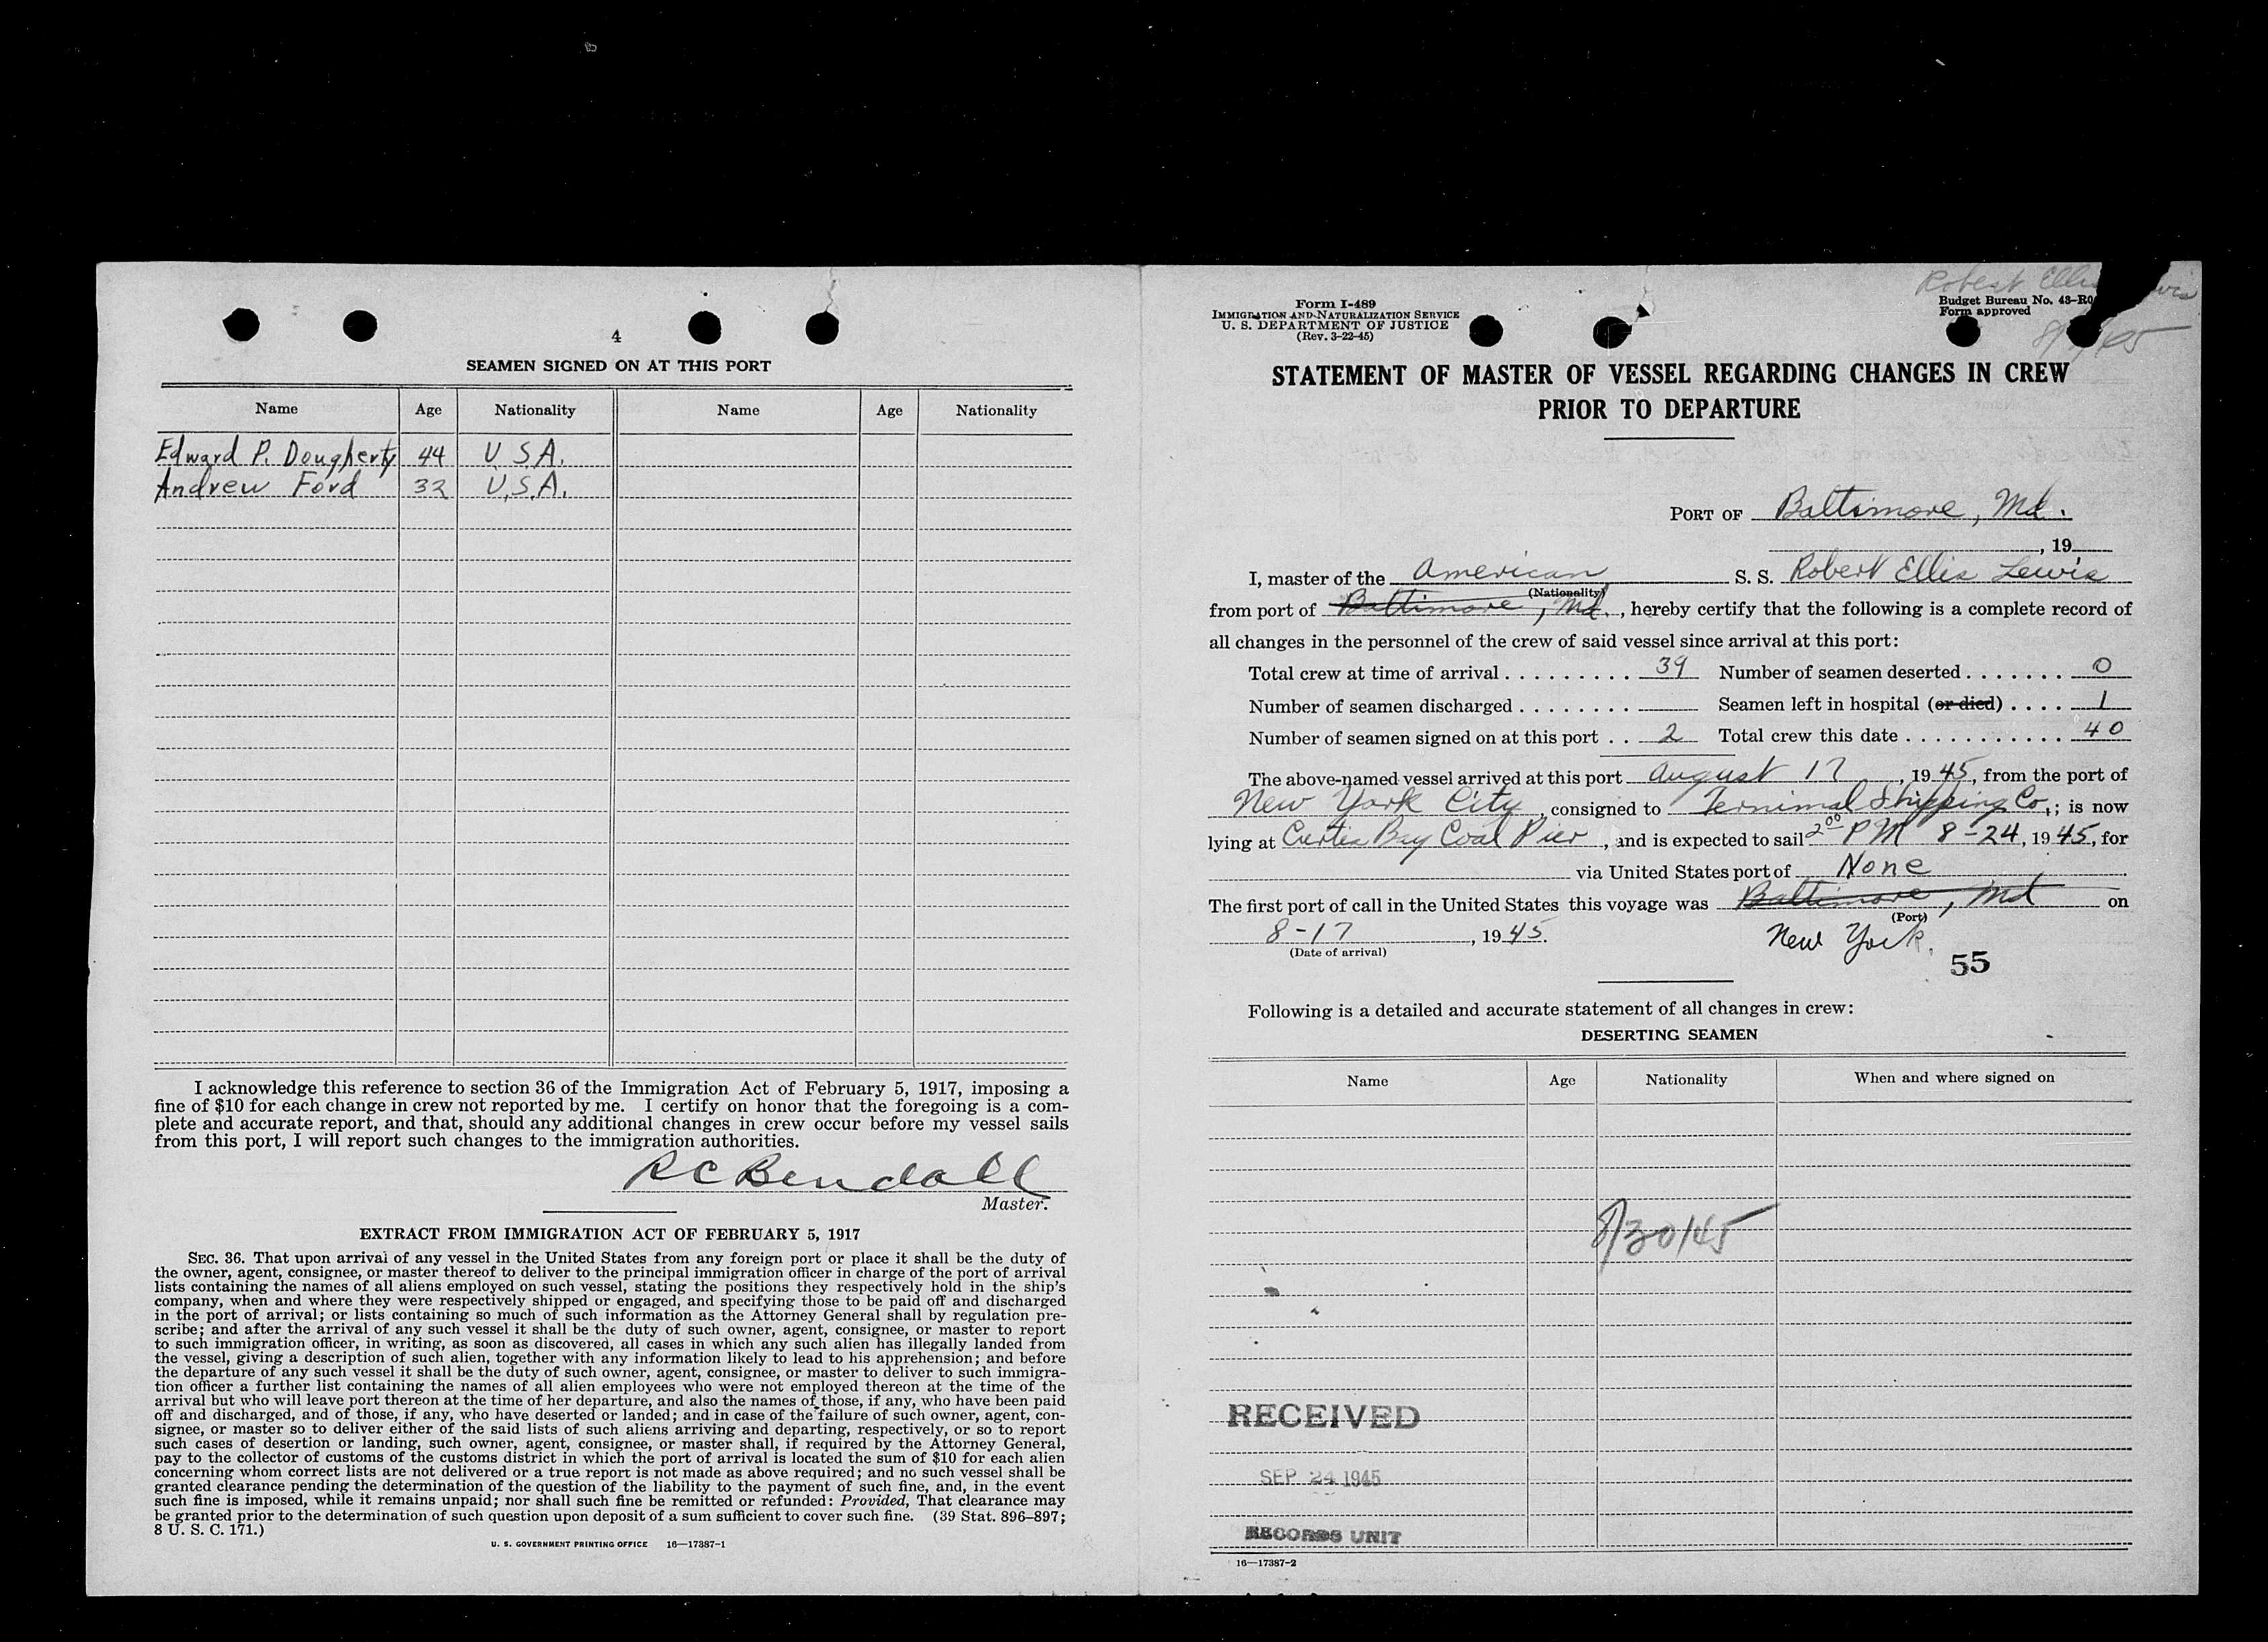 4
SEAMEN SIGNED ON AT THIS PORT
Name Age Nationality Name Age Nationality
Edward P. Dougherty 44 U.S.A.
Andrew Ford 32 U.S.A.
I acknowledge this reference to section 36 of the Immigration Act of February 5, 1917, imposing a
fine of $10 for each change in crew not reported by me. I certify on honor that the foregoing is a com-
plete and accurate report, and that, should any additional changes in crew occur before my vessel sails
from this port, I will report such changes to the immigration authorities.
R C Bendall
Master.
EXTRACT FROM IMMIGRATION ACT OF FEBRUARY 5, 1917
SEC. 36. That upon arrival of any vessel in the United States from any foreign port or place it shall be the duty of
the owner, agent, consignee, or master thereof to deliver to the principal immigration officer in charge of the port of arrival
lists containing the names of all aliens employed on such vessel, stating the positions they respectively hold in the ship's
company, when and where they were respectively shipped or engaged, and specifying those to be paid off and discharged
in the port of arrival; or lists containing so much of such information as the Attorney General shall by regulation pre-
scribe; and after the arrival of any such vessel it shall be the duty of such owner, agent, consignee, or master to report
to such immigration officer, in writing, as soon as discovered, all cases in which any such alien has illegally landed from
the vessel, giving a description of such alien, together with any information likely to lead to his apprehension; and before
the departure of any such vessel it shall be the duty of such owner, agent, consignee, or master to deliver to such immigra-
tion officer a further list containing the names of all alien employees who were not employed thereon at the time of the
arrival but who will leave port thereon at the time of her departure, and also the names of those, if any, who have been paid
off and discharged, and of those, if any, who have deserted or landed; and in case of the failure of such owner, agent, con-
signee, or master so to deliver either of the said lists of such aliens arriving and departing, respectively, or so to report
such cases of desertion or landing, such owner, agent, consignee, or master shall, if required by the Attorney General,
pay to the collector of customs of the customs district in which the port of arrival is located the sum of $10 for each alien
concerning whom correct lists are not delivered or a true report is not made as above required; and no such vessel shall be
granted clearance pending the determination of the question of the liability to the payment of such fine, and, in the event
such fine is imposed, while it remains unpaid; nor shall such fine be remitted or refunded: Provided, That clearance may
be granted prior to the determination of such question upon deposit of a sum sufficient to cover such fine. (39 Stat. 896–897;
8 U. S. C. 171.)
U. S. GOVERNMENT PRINTING OFFICE 16—17387-1
Robert Ellis
Form I-489
IMMIGRATION AND NATURALIZATION SERVICE
U. S. DEPARTMENT OF JUSTICE
(Rev. 3-22-45)
Budget Bureau No. 43-R0
Form approved
STATEMENT OF MASTER OF VESSEL REGARDING CHANGES IN CREW
PRIOR TO DEPARTURE
PORT OF Baltimore, Md.
, 19
I, master of the American S. S. Robert Ellis Lewis
(Nationality)
from port of Baltimore, Md., hereby certify that the following is a complete record of
all changes in the personnel of the crew of said vessel since arrival at this port:
Total crew at time of arrival . . . . . . . . . 39 Number of seamen deserted . . . . . . . 0
Number of seamen discharged . . . . . . . . Seamen left in hospital (or died) . . . . 1
Number of seamen signed on at this port . . 2 Total crew this date . . . . . . . . . . . 40
The above-named vessel arrived at this port August 17, 19 45, from the port of
New York City, consigned to Terminal Shipping Co.; is now
lying at Curtis Bay Coal Pier, and is expected to sail 2 00 PM 8-24, 19 45, for
via United States port of None
The first port of call in the United States this voyage was Baltimore, Md on
(Port)
8-17, 19 45. New York.
(Date of arrival)
55
Following is a detailed and accurate statement of all changes in crew:
DESERTING SEAMEN
Name Age Nationality When and where signed on
8/30/45
RECEIVED
SEP 24 1945
RECORDS UNIT
16—17387-2